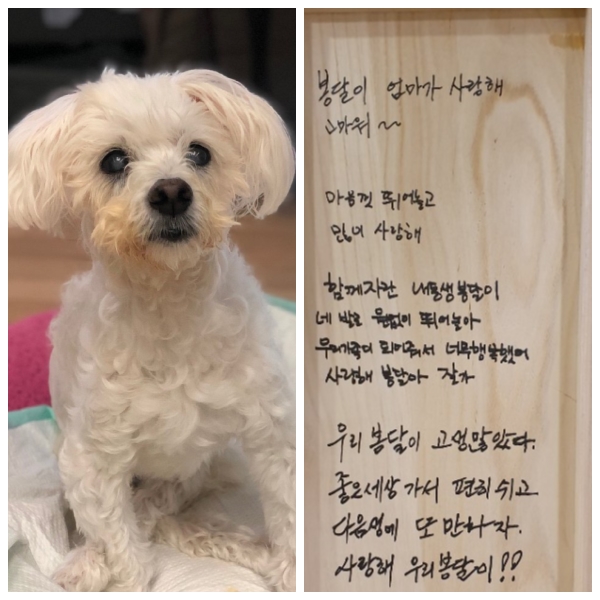 봉달이 엄마가 사랑해
고마워~
마음껏 뛰어놀고
많이 사랑해
함께자란 내동생봉달이
네 발로 원없이 뛰어놀아
우리가족이 되어줘서 너무행복했어
사랑해 봉달아 잘가
우리 봉달이 고생많았다.
좋은세상 가서 편히 쉬고
다음생에 또 만나자.
사랑해 우리봉달이!!